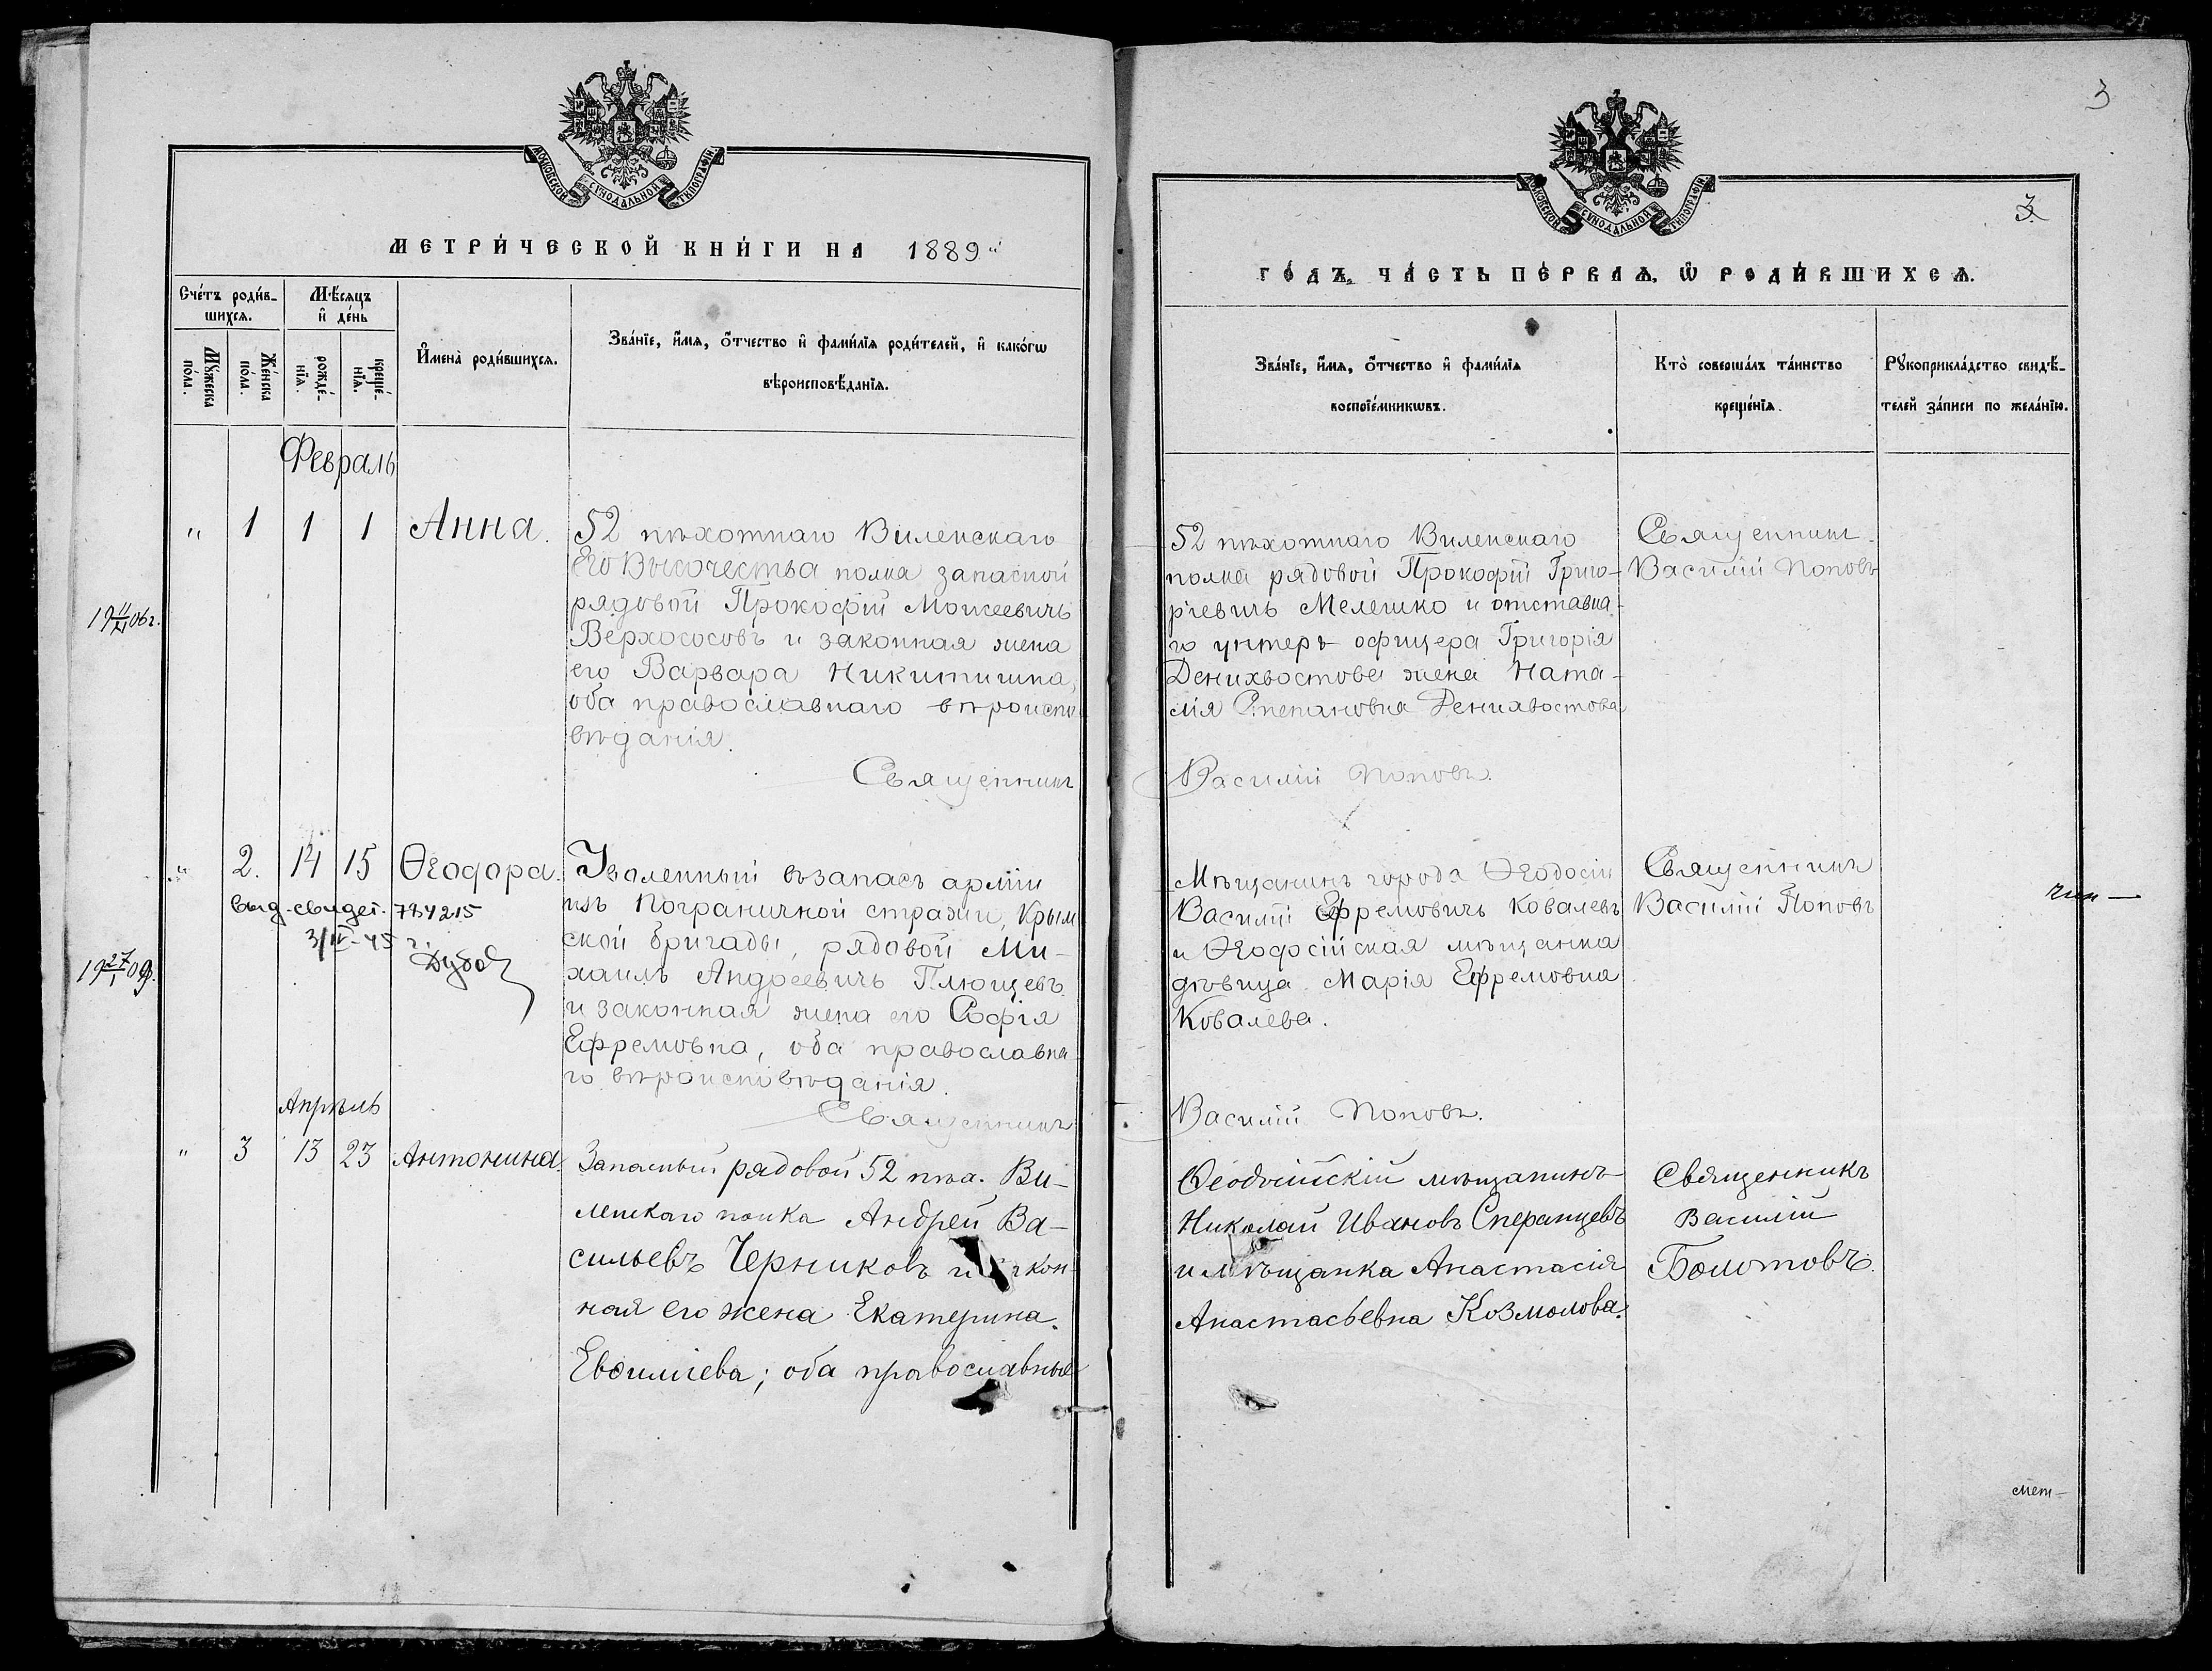 3
МОСКОВСКОЙ СѴНОДАЛЬНОЙ ТИПОГРАФІИ.
МЕТРИ́ЧЕСКОЙ КНИ́ГИ НА 1889 "
Сче́тъ роди́в-
шихсѧ.
Мѣ́сяцъ
и҆ де́нь
Мꙋ́жеска
по́ла.
Же́нска
по́ла.
рожде́-
нїѧ.
креще́-
нїѧ.
И҆мена̀ роди́вшихсѧ.
Зва́нїе, и҆́мѧ, ѻ҆́тчество и҆ фами́лїѧ роди́телей, и҆ како́гѡ
вѣроисповѣ́данїѧ.
Февраль
" 1 1 1 Анна.
52 пѣхотнаго Виленскаго
Его Высочества полка запасной
рядовой Прокофій Моисеевичъ
Верхососовъ и законная жена
его Варвара Никитишна,
оба православнаго вѣроиспо
вѣданія.
Священникъ
19 11/XI 06 г.
" 2. 14 15 Ѳеодора.
Уволенный въ запасъ арміи
изъ Пограничной стражи, Крым
ской бригады, рядовой Ми-
хаилъ Андреевичъ Плющевъ
и законная жена его Софія
Ефремовна, оба православна
го вѣроисповѣданія.
Священникъ
выд. свидет. 784215
3/IV-45 г.
19 27/I 09 г.
Апрѣль
" 3 13 23 Антонина.
Запасный рядовой 52 пѣх. Ви-
ленскаго полка Андрей Ва-
сильевъ Черниковъ и закон-
ная его жена Екатерина
Евфиміева; оба православные
3
МОСКОВСКОЙ СѴНОДАЛЬНОЙ ТИПОГРАФІИ.
ГО́ДЪ, ЧА́СТЬ ПЕ́РВАѦ, Ѡ҆ РОДИ́ВШИХСѦ.
Зва́нїе, и҆́мѧ, ѻ҆́тчество и҆ фами́лїѧ
воспрїе́мникѡвъ.
Кто̀ соверша́лъ та́инство
креще́нїѧ.
Рꙋкоприкла́дство свидѣ́-
телей за́писи по жела́нїю.
52 пѣхотнаго Виленскаго
полка рядовой Прокофій Григо-
рьевичъ Мелешко и отставна-
го унтеръ офицера Григорія
Денихвостова жена Ната-
лія Степановна Денихвостова
Василій Поповъ.
Священникъ
Василій Поповъ
Мѣщанинъ города Ѳеодосіи
Василій Ефремовичъ Ковалевъ
и Ѳеодосійская мѣщанка
дѣвица Марія Ефремовна
Ковалева.
Василій Поповъ.
Священникъ
Василій Поповъ
Ѳеодосійскій мѣщанинъ
Николай Ивановъ Сперанцевъ
и мѣщанка Анастасія
Анастасьевна Козмолова.
Священникъ
Василій
Болотовъ.
мет-